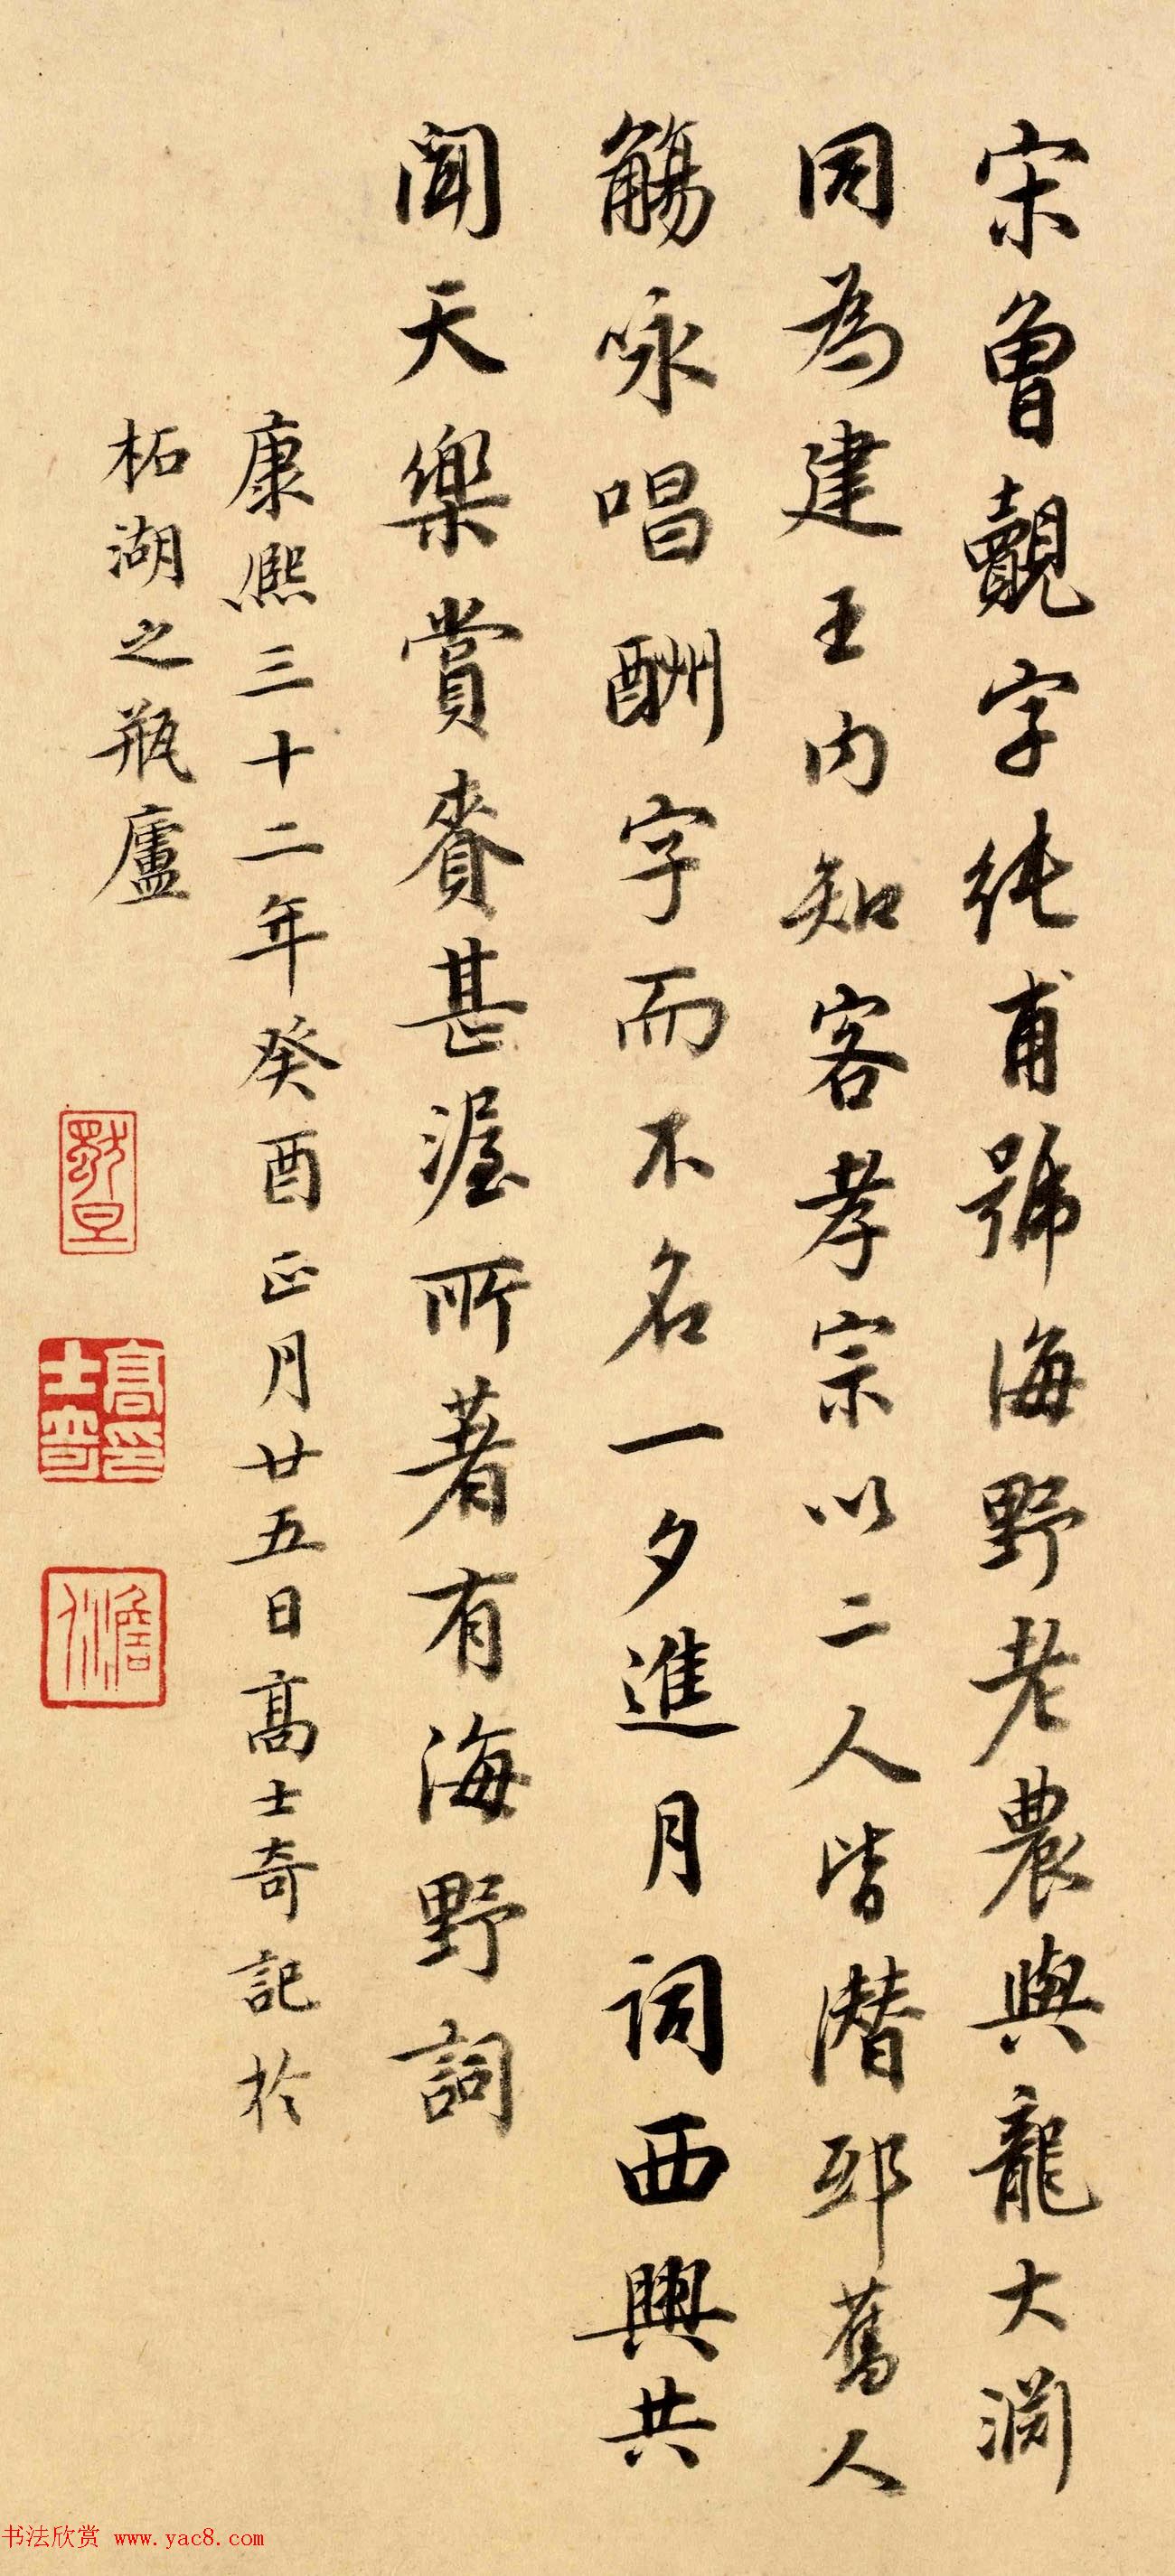 宋曾覿字純甫號海野老農與龍大淵
同為建王內知客孝宗以二人皆潛邸舊人
觴咏唱酬字而不名一夕進月詞西興共
聞天樂賞賚甚渥所著有海野詞
康熙三十二年癸酉正月廿五日高士奇記於
柘湖之瓶廬
高士奇印
书法欣赏 www.yac8.com